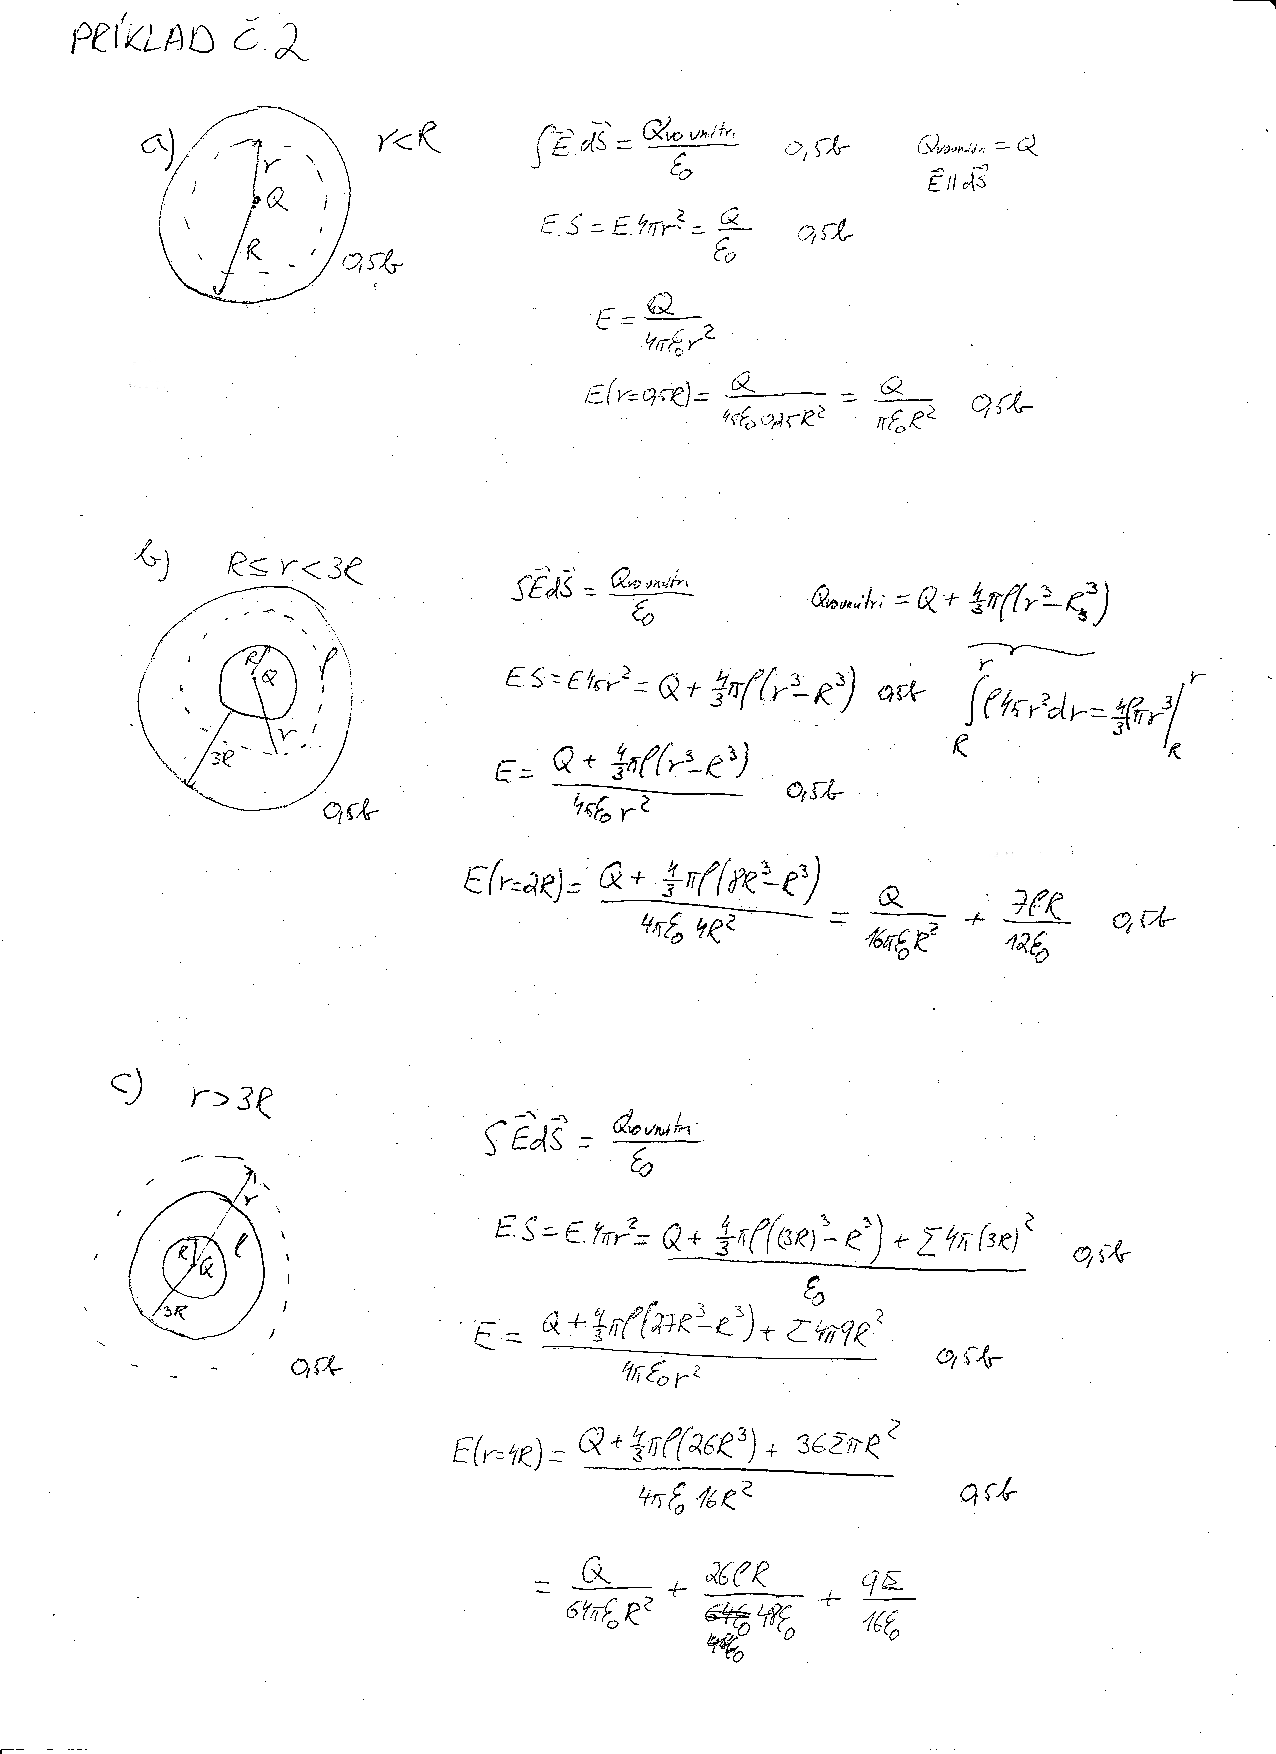 PŘÍKLAD č. 2
a) r<R
r
Q
R
0,5b
∫E⃗.dS⃗ = Qvo vnitri / ε₀ 0,5b Qvovnitri = Q
E⃗ || dS⃗
E.S = E.4πr² = Q / ε₀ 0,5b
E = Q / 4πε₀r²
E(r=0,5R) = Q / 4πε₀0,25R² = Q / πε₀R² 0,5b
b) R≤r<3R
R
Q
ρ
r
3R
0,5b
∫E⃗dS⃗ = Qvo vnútri / ε₀ Qvovnútri = Q + 4/3 πρ(r³-R³)
ES = E4πr² = Q + 4/3 πρ(r³-R³) 0,5b ∫_R^r ρ4πr²dr = 4/3 ρπr³ |_R^r
E = Q + 4/3 πρ(r³-R³) / 4πε₀r² 0,5b
E(r=2R) = Q + 4/3 πρ(8R³-R³) / 4πε₀ 4R² = Q / 16πε₀R² + 7ρR / 12ε₀ 0,5b
c) r>3R
r
R
Q
ρ
3R
0,5b
∫E⃗dS⃗ = Qvo vnutri / ε₀
E.S = E.4πr² = Q + 4/3 πρ((3R)³-R³) + Σ4π(3R)² / ε₀ 0,5b
E = Q + 4/3 πρ(27R³-R³) + Σ4π9R² / 4πε₀r² 0,5b
E(r=4R) = Q + 4/3 πρ(26R³) + 36ΣπR² / 4πε₀ 16R² 0,5b
= Q / 64πε₀R² + 26ρR / 48ε₀ + 9Σ / 16ε₀